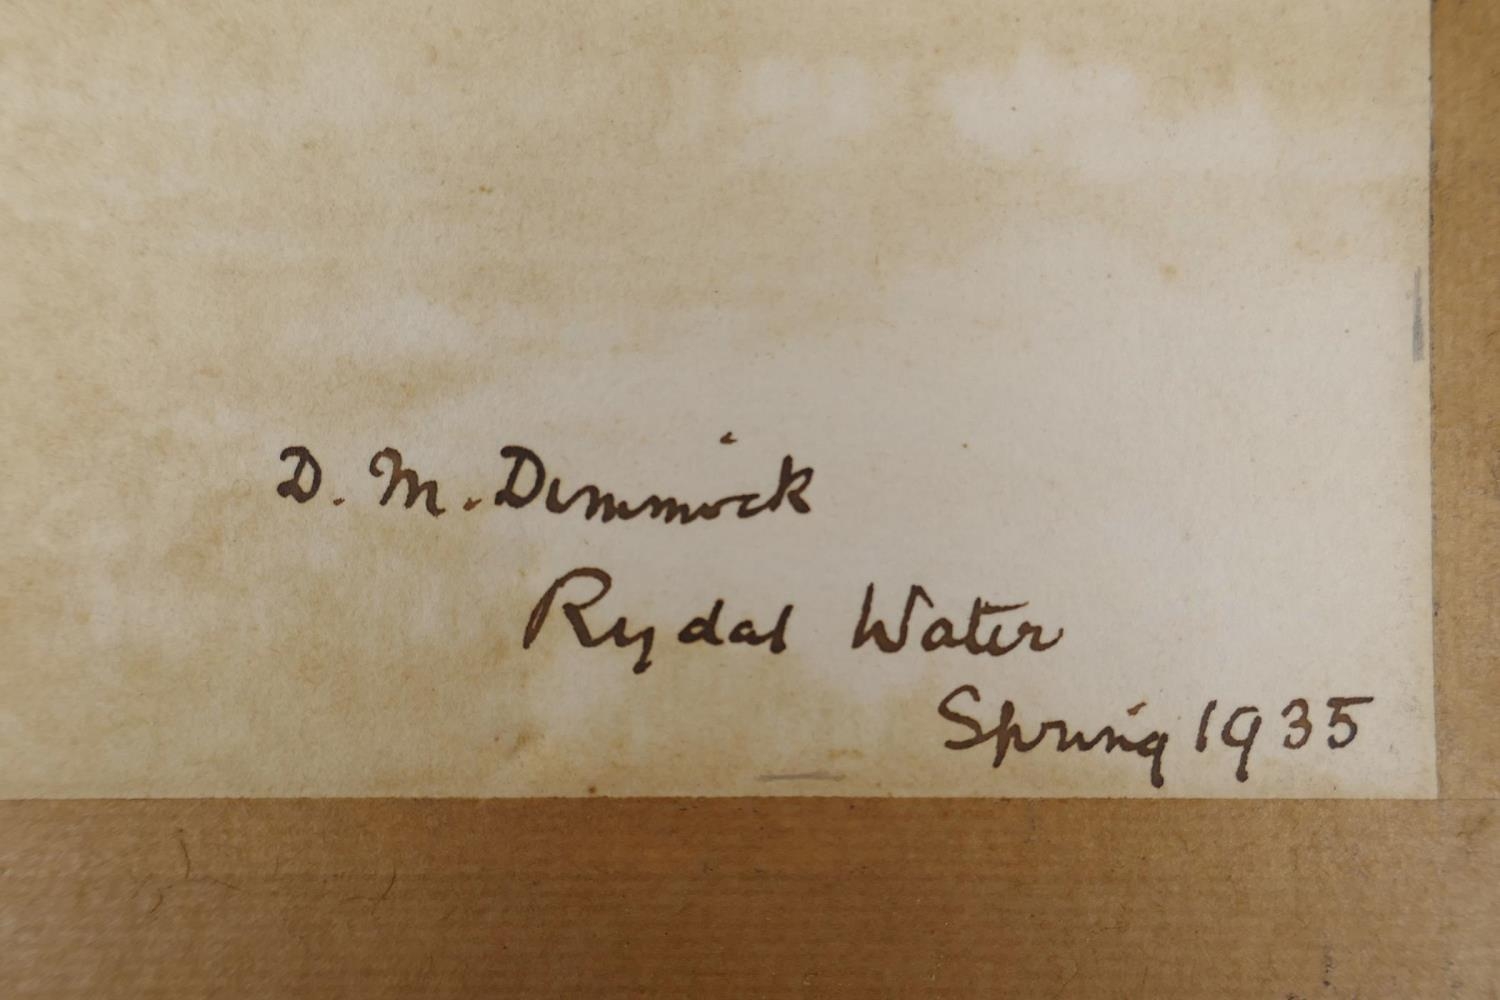 D. M. Dimmock
Rydal Water
Spring 1935